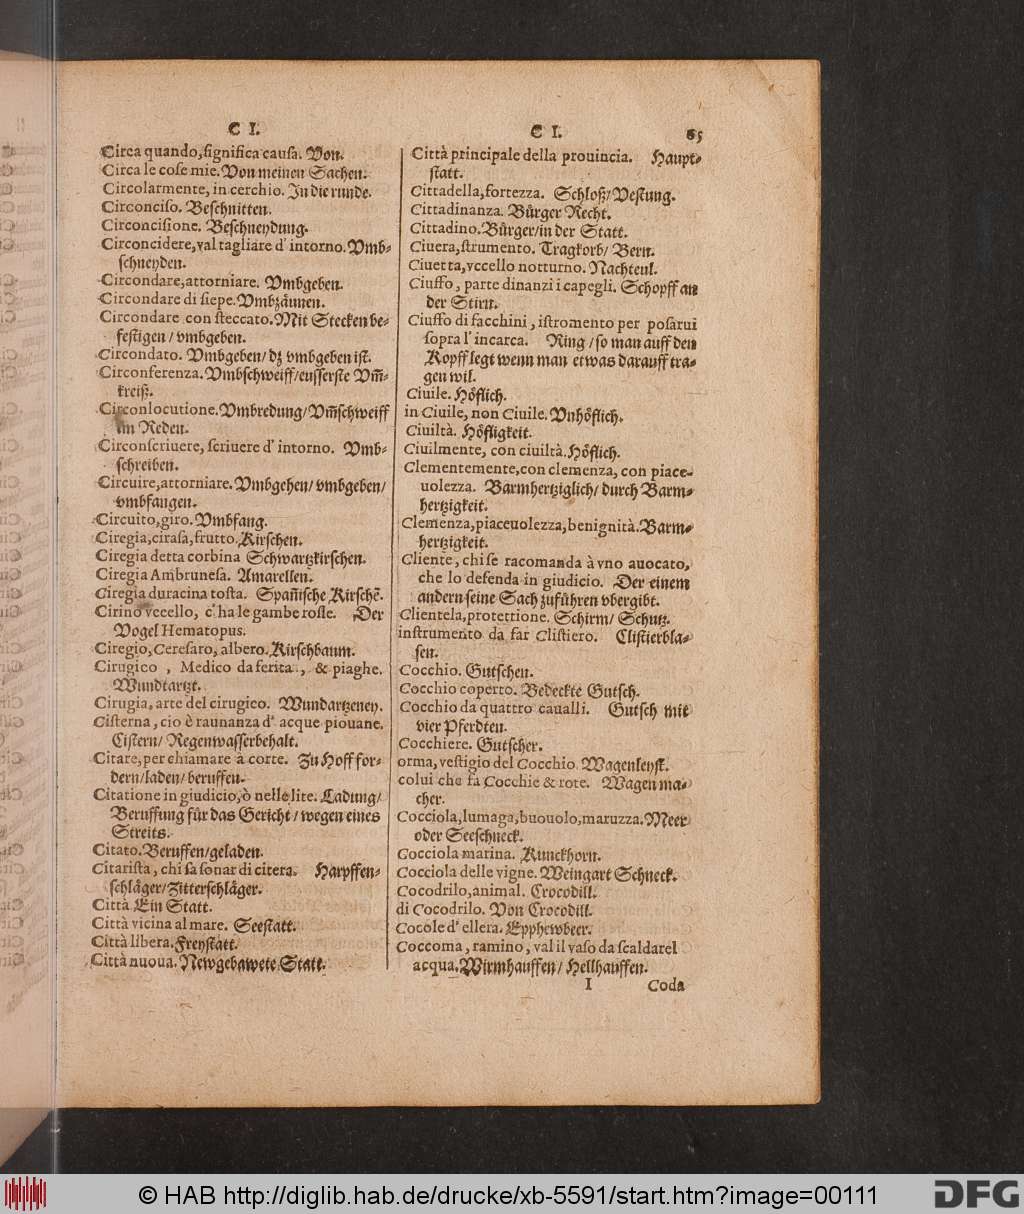 C I.
Circa quando, ſignifica cauſa. Von.
Circa le coſe mie. Von meinen Sachen.
Circolarmente, in cerchio. In die runde.
Circonciſo. Beſchnitten.
Circonciſione. Beſchneydung.
Circoncidere, val tagliare d' intorno. Vmb-
ſchneyden.
Circondare, attorniare. Vmbgeben.
Circondare di ſiepe. Vmbzaͤunen.
Circondare con ſteccato. Mit Stecken be-
feſtigen / vmbgeben.
Circondato. Vmbgeben / dz vmbgeben iſt.
Circonferenza. Vmbſchweiff / euſſerſte Vm̃-
kreiß.
Circonlocutione. Vmbredung / Vm̃ſchweiff
im Reden.
Circonſcriuere, ſcriuere d' intorno. Vmb-
ſchreiben.
Circuire, attorniare. Vmbgehen / vmbgeben /
vmbfangen.
Circuito, giro. Vmbfang.
Ciregia, ciraſa, frutto. Kirſchen.
Ciregia detta corbina Schwartzkirſchen.
Ciregia Ambruneſa. Amarellen.
Ciregia duracina toſta. Spañiſche Kirſchẽ.
Cirino vccello, c' ha le gambe roſſe. Der
Vogel Hematopus.
Ciregio, Ceraſaro, albero. Kirſchbaum.
Cirugico , Medico da ferita , & piaghe.
Wundtartzt.
Cirugia, arte del cirugico. Wundartzeney.
Ciſterna, cio è raunanza d' acque piouane.
Ciſtern / Regenwaſſerbehalt.
Citare, per chiamare à corte. Zu Hoff for-
dern / laden / beruffen.
Citatione in giudicio, ò nelle lite. Ladung /
Beruffung fuͤr das Gericht / wegen eines
Streits.
Citato. Beruffen / geladen.
Citariſta, chi ſa ſonar di citera. Harpffen-
ſchlaͤger / Zitterſchlaͤger.
Città Ein Statt.
Città vicina al mare. Seeſtatt.
Città libera. Freyſtatt.
Città nuoua. Newgebawete Statt.
C I. 65
Città principale della prouincia. Haupt-
ſtatt.
Cittadella, fortezza. Schloß / Veſtung.
Cittadinanza. Buͤrger Recht.
Cittadino. Buͤrger / in der Statt.
Ciuera, ſtrumento. Tragkorb / Bern.
Ciuetta, vccello notturno. Nachteul.
Ciuffo, parte dinanzi i capegli. Schopff an
der Stirn.
Ciuffo di facchini, iſtromento per poſarui
ſopra l' incarca. Ring / ſo man auff den
Kopff legt wenn man etwas darauff tra-
gen wil.
Ciuile. Hoͤflich.
in Ciuile, non Ciuile. Vnhoͤflich.
Ciuiltà. Hoͤfligkeit.
Ciuilmente, con ciuiltà. Hoͤflich.
Clementemente, con clemenza, con piace-
uolezza. Barmhertziglich / durch Barm-
hertzigkeit.
Clemenza, piaceuolezza, benignità. Barm-
hertzigkeit.
Cliente, chi ſe racomanda à vno auocato,
che lo defenda in giudicio. Der einem
andern ſeine Sach zufuͤhren vbergibt.
Clientela, protettione. Schirm / Schutz.
inſtrumento da far Cliſtiero. Cliſtierbla-
ſen.
Cocchio. Gutſchen.
Cocchio coperto. Bedeckte Gutſch.
Cocchio da quattro caualli. Gutſch mit
vier Pferdten.
Cocchiere. Gutſcher.
orma, veſtigio del Cocchio. Wagenleyſt.
colui che fa Cocchie & rote. Wagen ma-
cher.
Cocciola, lumaga, buouolo, maruzza. Meer
oder Seeſchneck.
Cocciola marina. Kunckhorn.
Cocciola delle vigne. Weingart Schneck.
Cocodrilo, animal. Crocodill.
di Cocodrilo. Von Crocodill.
Cocole d' ellera. Epphewbeer.
Coccoma, ramino, val il vaſo da ſcaldarel
acqua. Wirmhauffen / Hellhauffen.
I Coda
© HAB http://diglib.hab.de/drucke/xb-5591/start.htm?image=00111
DFG